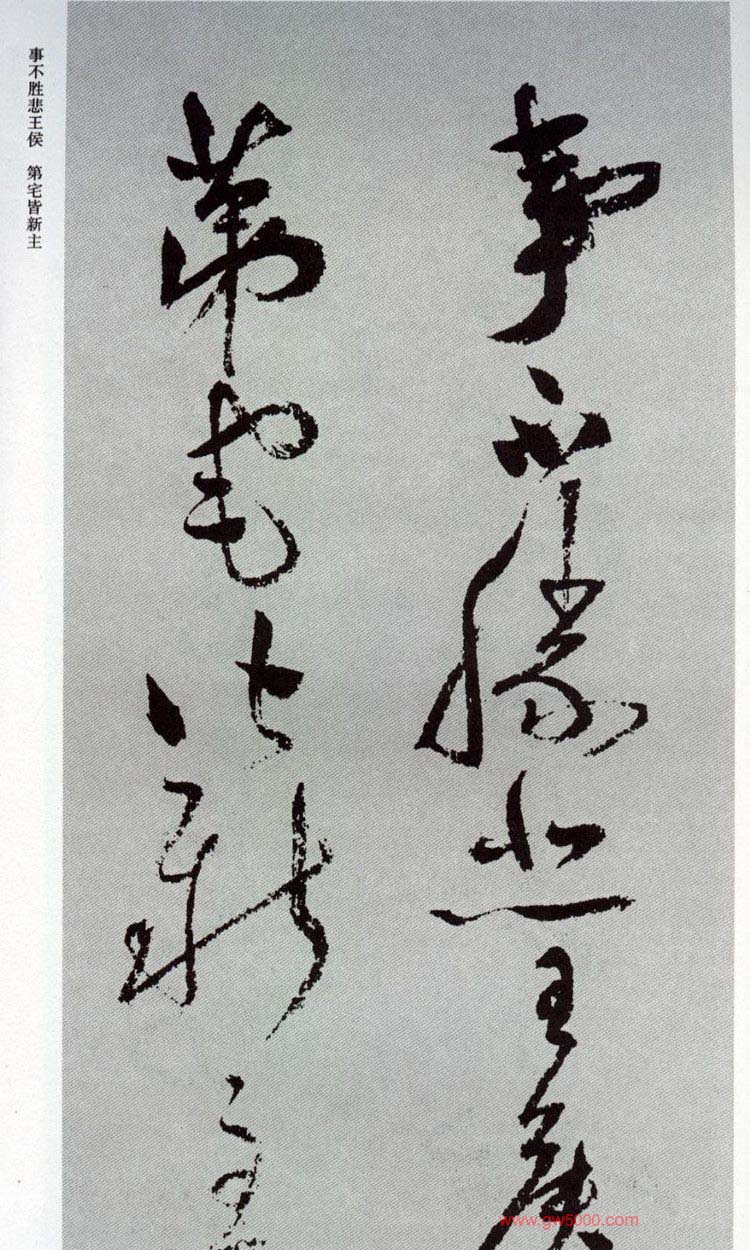 事不勝悲王侯
第宅皆新主
事不胜悲王侯　第宅皆新主
www.gw5000.com